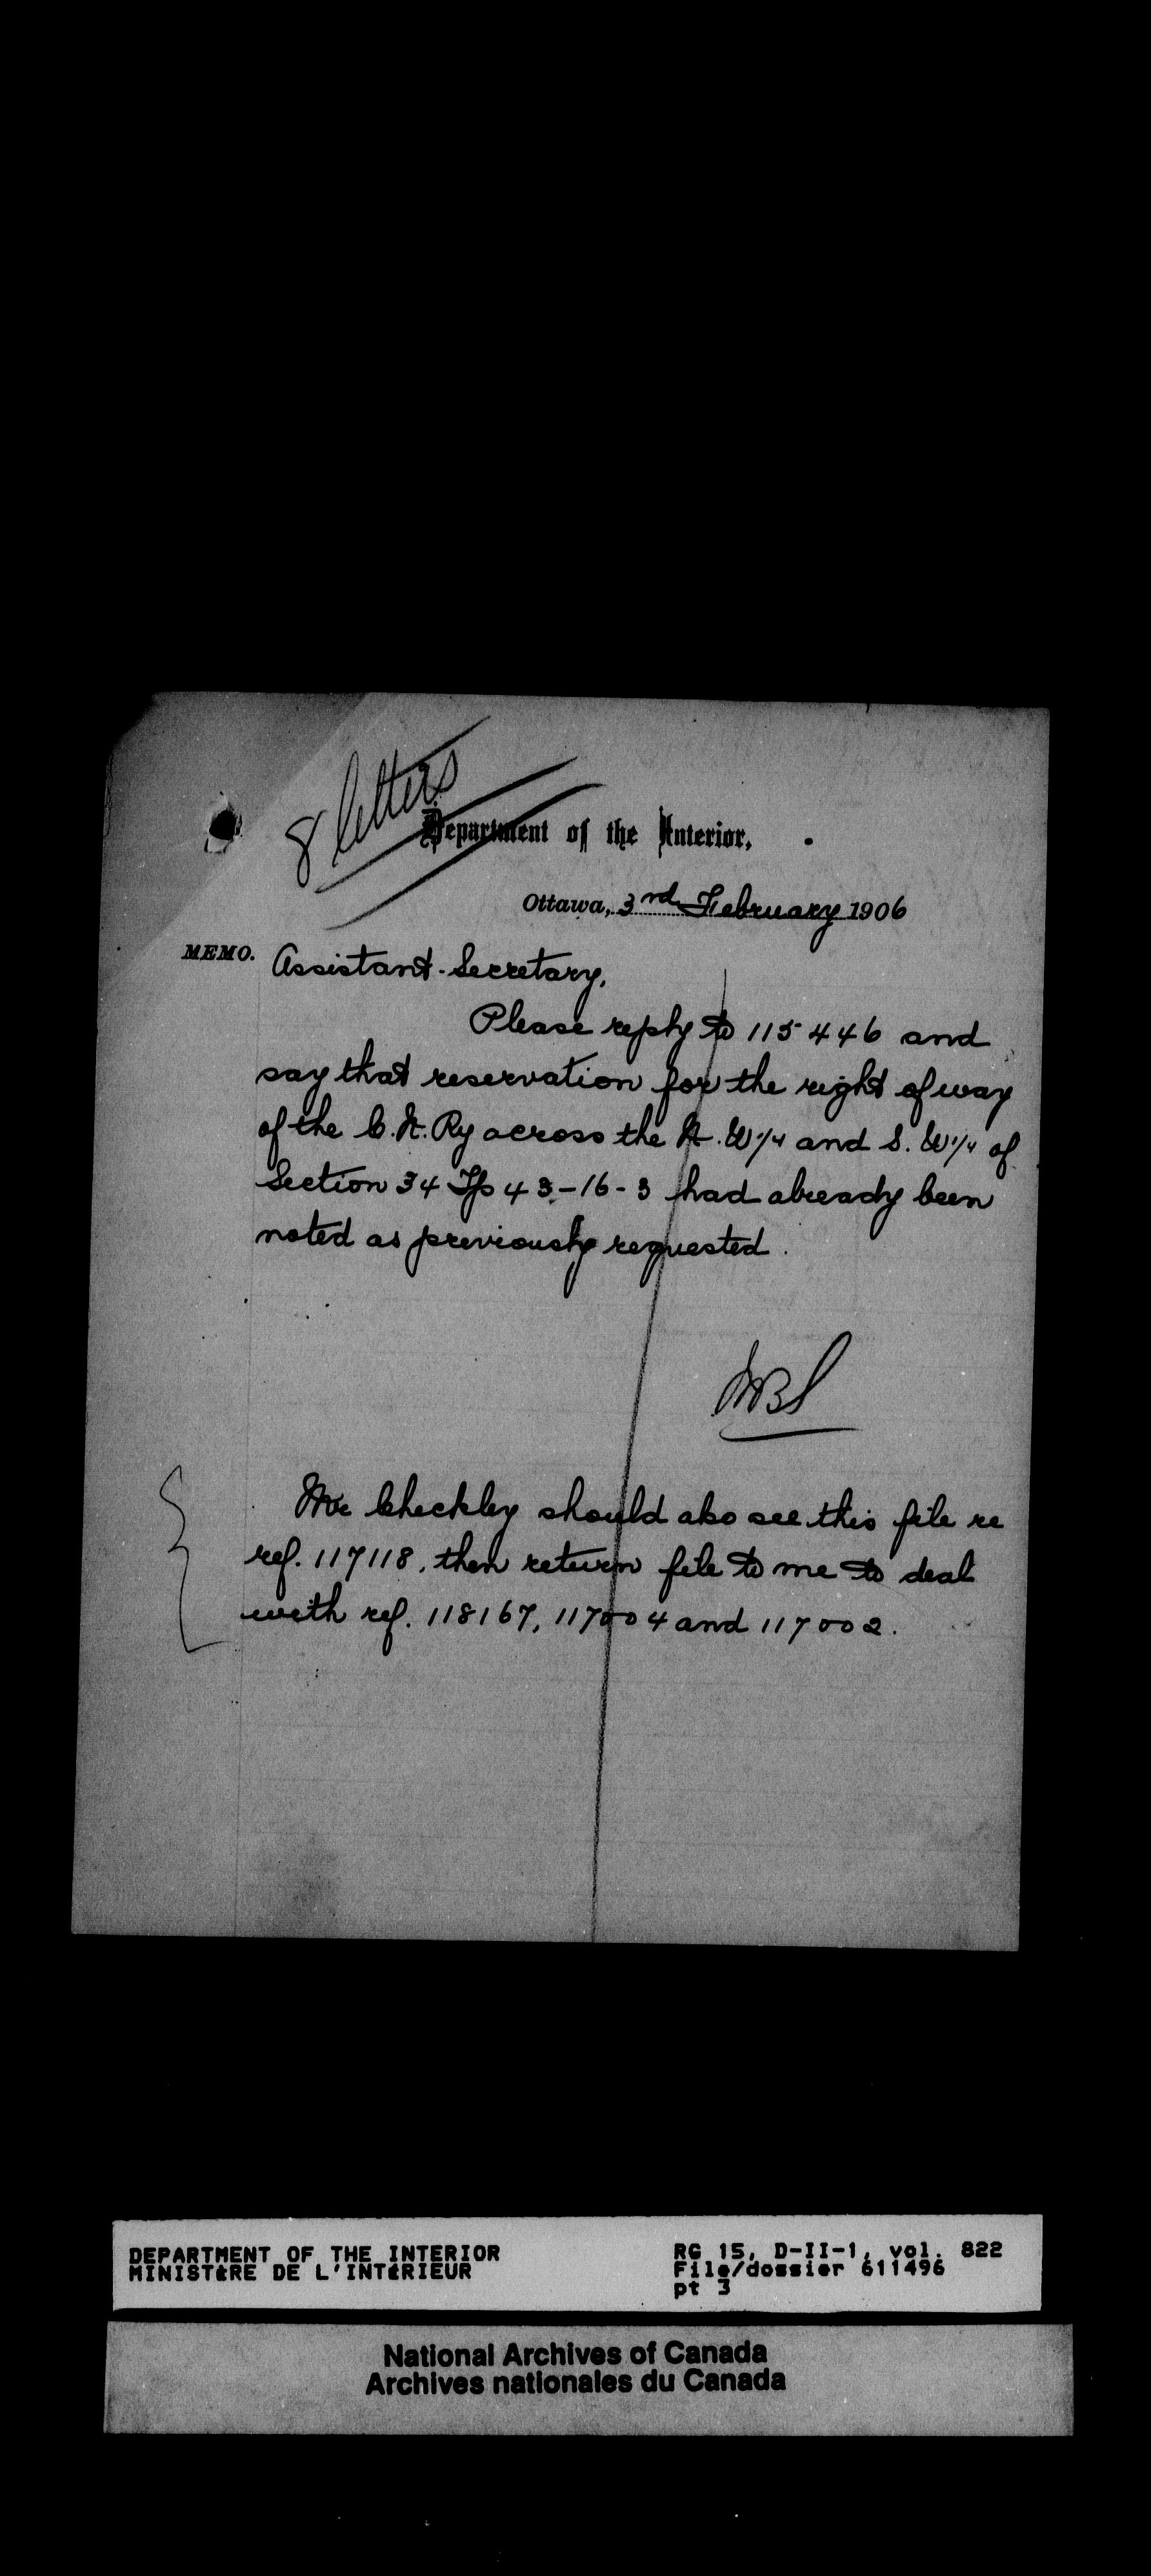 8 letters
Department of the Interior,
Ottawa, 3rd February 1906
MEMO. Assistant Secretary,
Please reply to 115446 and
say that reservation for the right of way
of the C. N. Ry across the N. W 1/4 and S. W 1/4 of
Section 34 Tp 43-16-3 had already been
noted as previously requested.
Mr Checkley should also see this file re
ref. 117118, then return file to me to deal
with ref. 118167, 117004 and 117002.
DEPARTMENT OF THE INTERIOR
MINISTÈRE DE L'INTÉRIEUR
RG 15, D-II-1, vol. 822
File/dossier 611496
pt 3
National Archives of Canada
Archives nationales du Canada